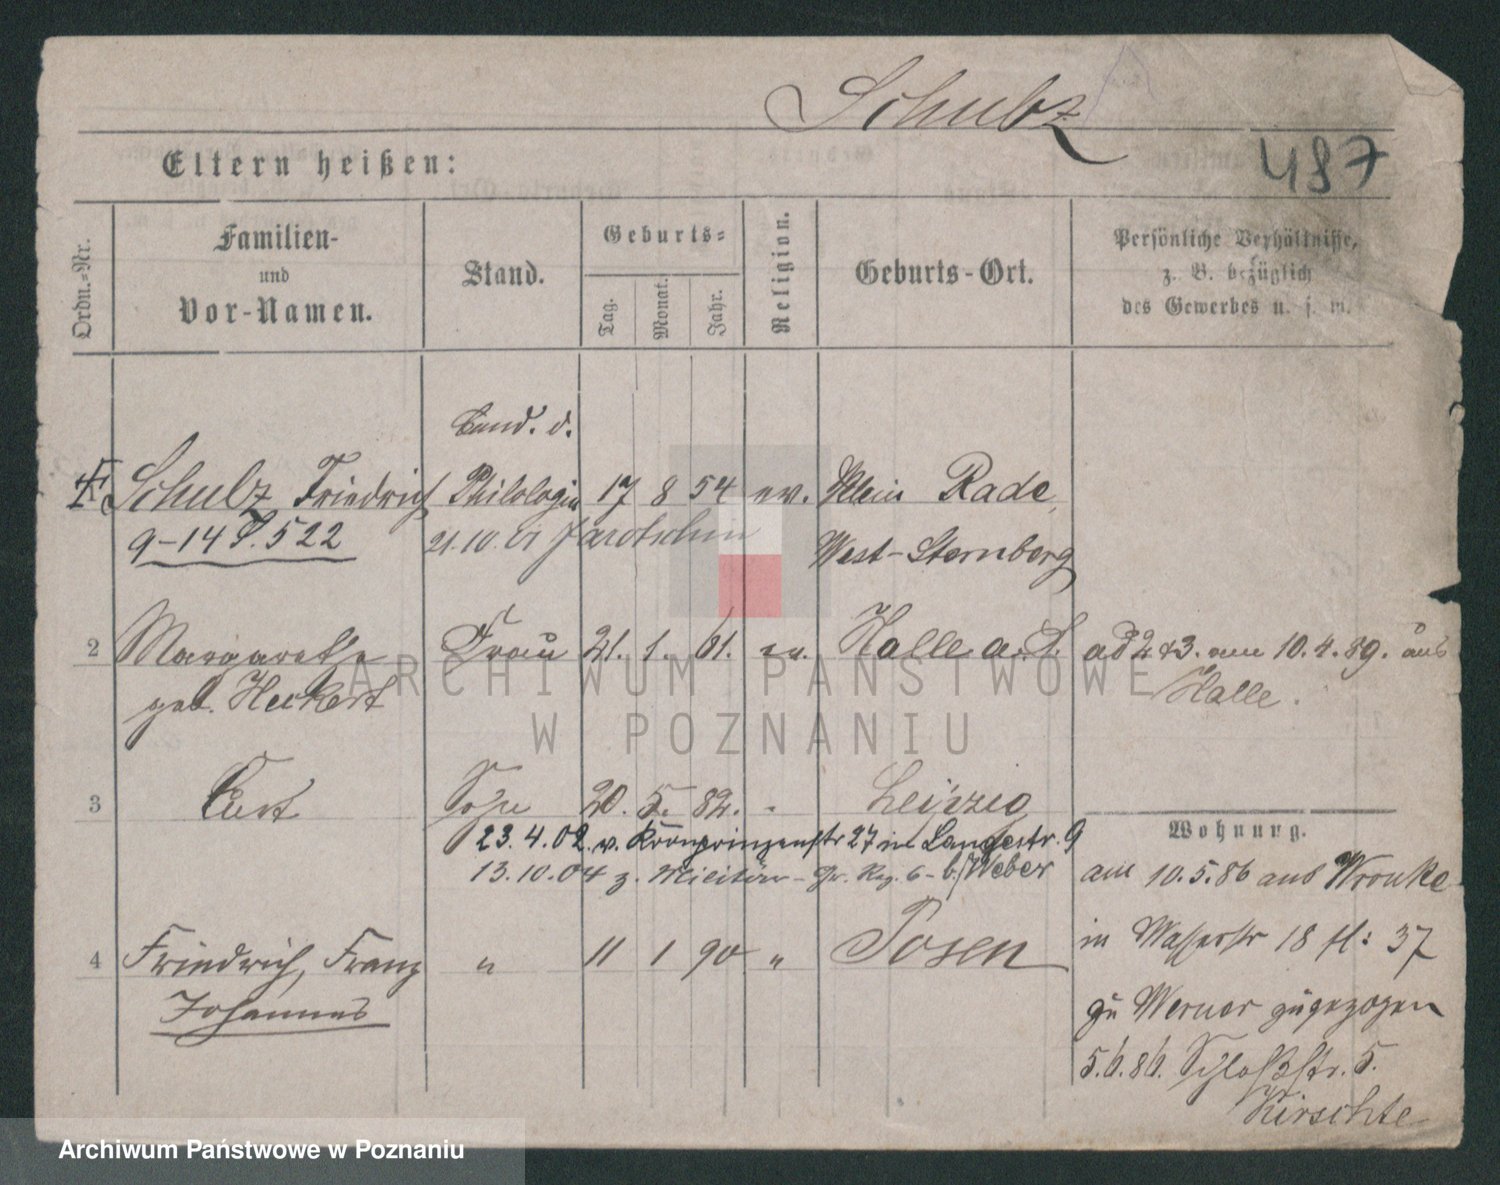 Schulz
487
Eltern heißen:
Ordn.-Nr.
Familien-
und
Vor-Namen.
Stand.
Geburts-
Tag.
Monat.
Jahr.
Religion.
Geburts-Ort.
Persönliche Verhältnisse,
z. B. bezüglich
des Gewerbes u. s. w.
Cand. d.
Schulz Friedrich Philologie 17 8 54 ev. Klein Rade,
9-14 S. 522 21.10. Jarotschin West-Sternberg
2 Margarethe Frau 21. 1. 61. ev. Halle a. S. ad 2 & 3. am 10.4.89. aus
geb. Heckert Halle.
ARCHIWUM PAŃSTWOWE
W POZNANIU
3 Curt Sohn 20. 5. 82. " Leipzig
23.4.02. v. Kronprinzenstr 27 in Langestr. 9
13.10.04 z. Militär - Gr. Reg. 6 - b/Weber
4 Friedrich, Franz " 11 1 90 " Posen
Johannes
Wohnung.
am 10.5.86 aus Wronke
in Wasserstr 18 fl: 37
zu Werner zugezogen
5.6.86. Schloßstr. 5.
Kirschte
Archiwum Państwowe w Poznaniu